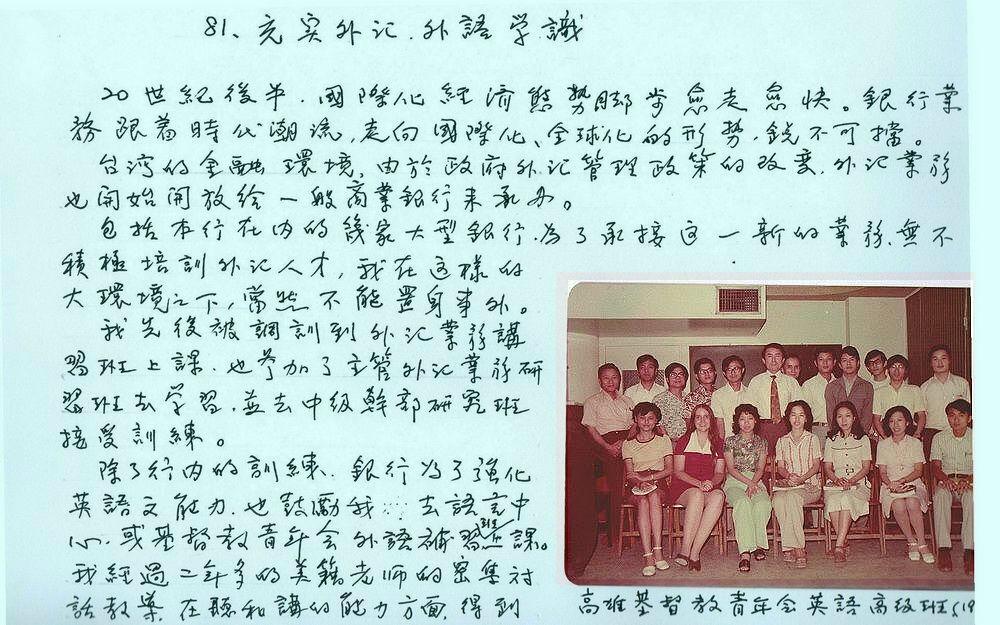 81、充实外汇.外語学識
20世紀後半.國際化經濟態勢脚步愈走愈快。銀行業
務跟着時代潮流,走向國際化、全球化的形勢,銳不可擋。
台湾的金融環境,由於政府外汇管理政策的改変,外汇業務
也開始開放给一般商業銀行来承办。
包括本行在内的幾家大型銀行.为了承接这一新的業務.無不
積極培訓外汇人才,我在这樣的
大環境之下,當然不能置身事外。
我先後被調訓到外汇業務講
習班上課.也参加了主管外汇業務研
習班去学習.並去中级幹部研究班
接受訓練。
除了行内的訓練.銀行为了強化
英語文能力.也鼓勵我去語言中
心.或基督教青年会外語補習班上課。
我經過二年多的美籍老师的密集对
話教学.在聽和講的能力方面.得到
高雄基督教青年会英語高级班(19